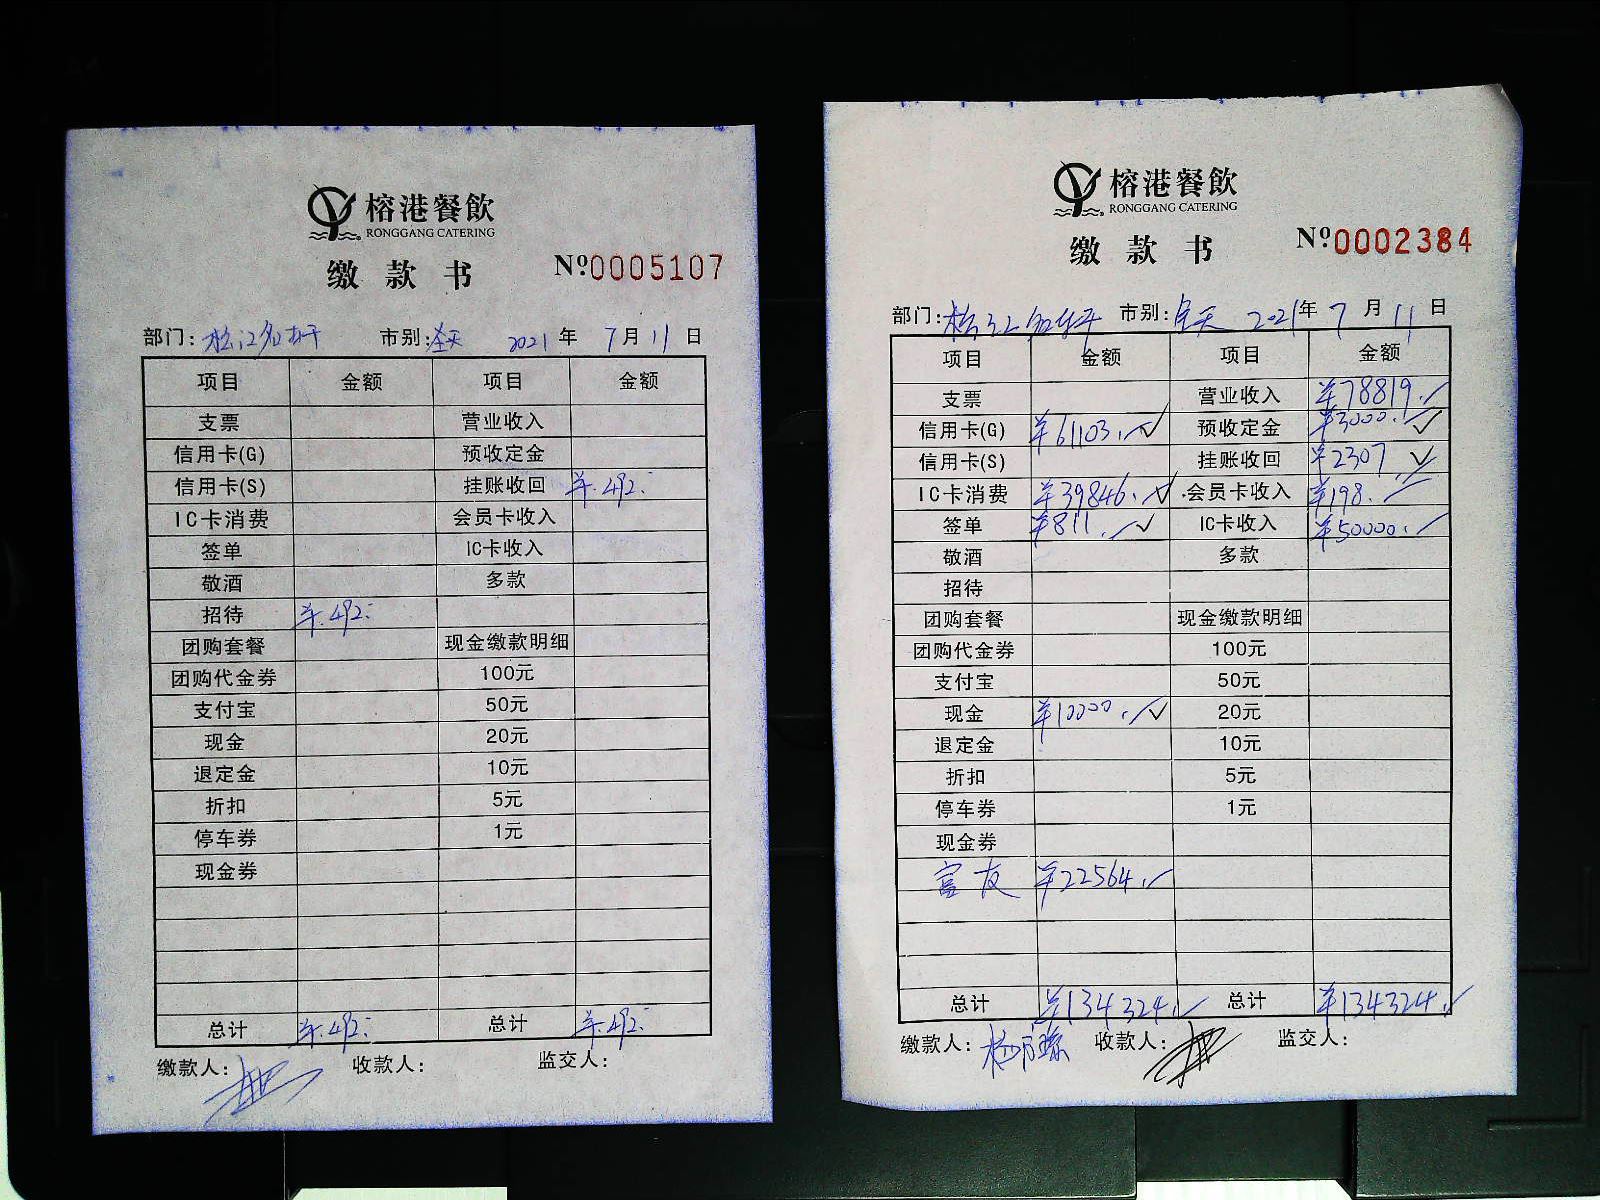 榕港餐飲
RONGGANG CATERING
缴款书
№0005107
部门: 市别:全天 2021年7月11日
项目 金额 项目 金额
支票 营业收入
信用卡(G) 预收定金
信用卡(S) 挂账收回 ¥492.
IC卡消费 会员卡收入
签单 IC卡收入
敬酒 多款
招待 ¥492.
团购套餐 现金缴款明细
团购代金券 100元
支付宝 50元
现金 20元
退定金 10元
折扣 5元
停车券 1元
现金券
总计 ¥492. 总计 ¥492.
缴款人: 收款人: 监交人:
榕港餐飲
RONGGANG CATERING
缴款书
№0002384
部门: 市别:全天 2021年7月11日
项目 金额 项目 金额
支票 营业收入 ¥78819.
信用卡(G) ¥61103. 预收定金 ¥3000.
信用卡(S) 挂账收回 ¥2307
IC卡消费 ¥39846. 会员卡收入 ¥198.
签单 ¥811. IC卡收入 ¥50000.
敬酒 多款
招待
团购套餐 现金缴款明细
团购代金券 100元
支付宝 50元
现金 ¥10000. 20元
退定金 10元
折扣 5元
停车券 1元
现金券
富友 ¥22564.
总计 ¥134324. 总计 ¥134324.
缴款人: 收款人: 监交人: